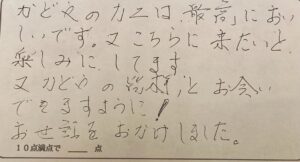 かど文のカニは「最高」においしいです。又こちらに来たいと
楽しみに、してます
又かど文の皆様とお会い
できますように！
おせ話をおかけしました。
10点満点で ＿＿ 点